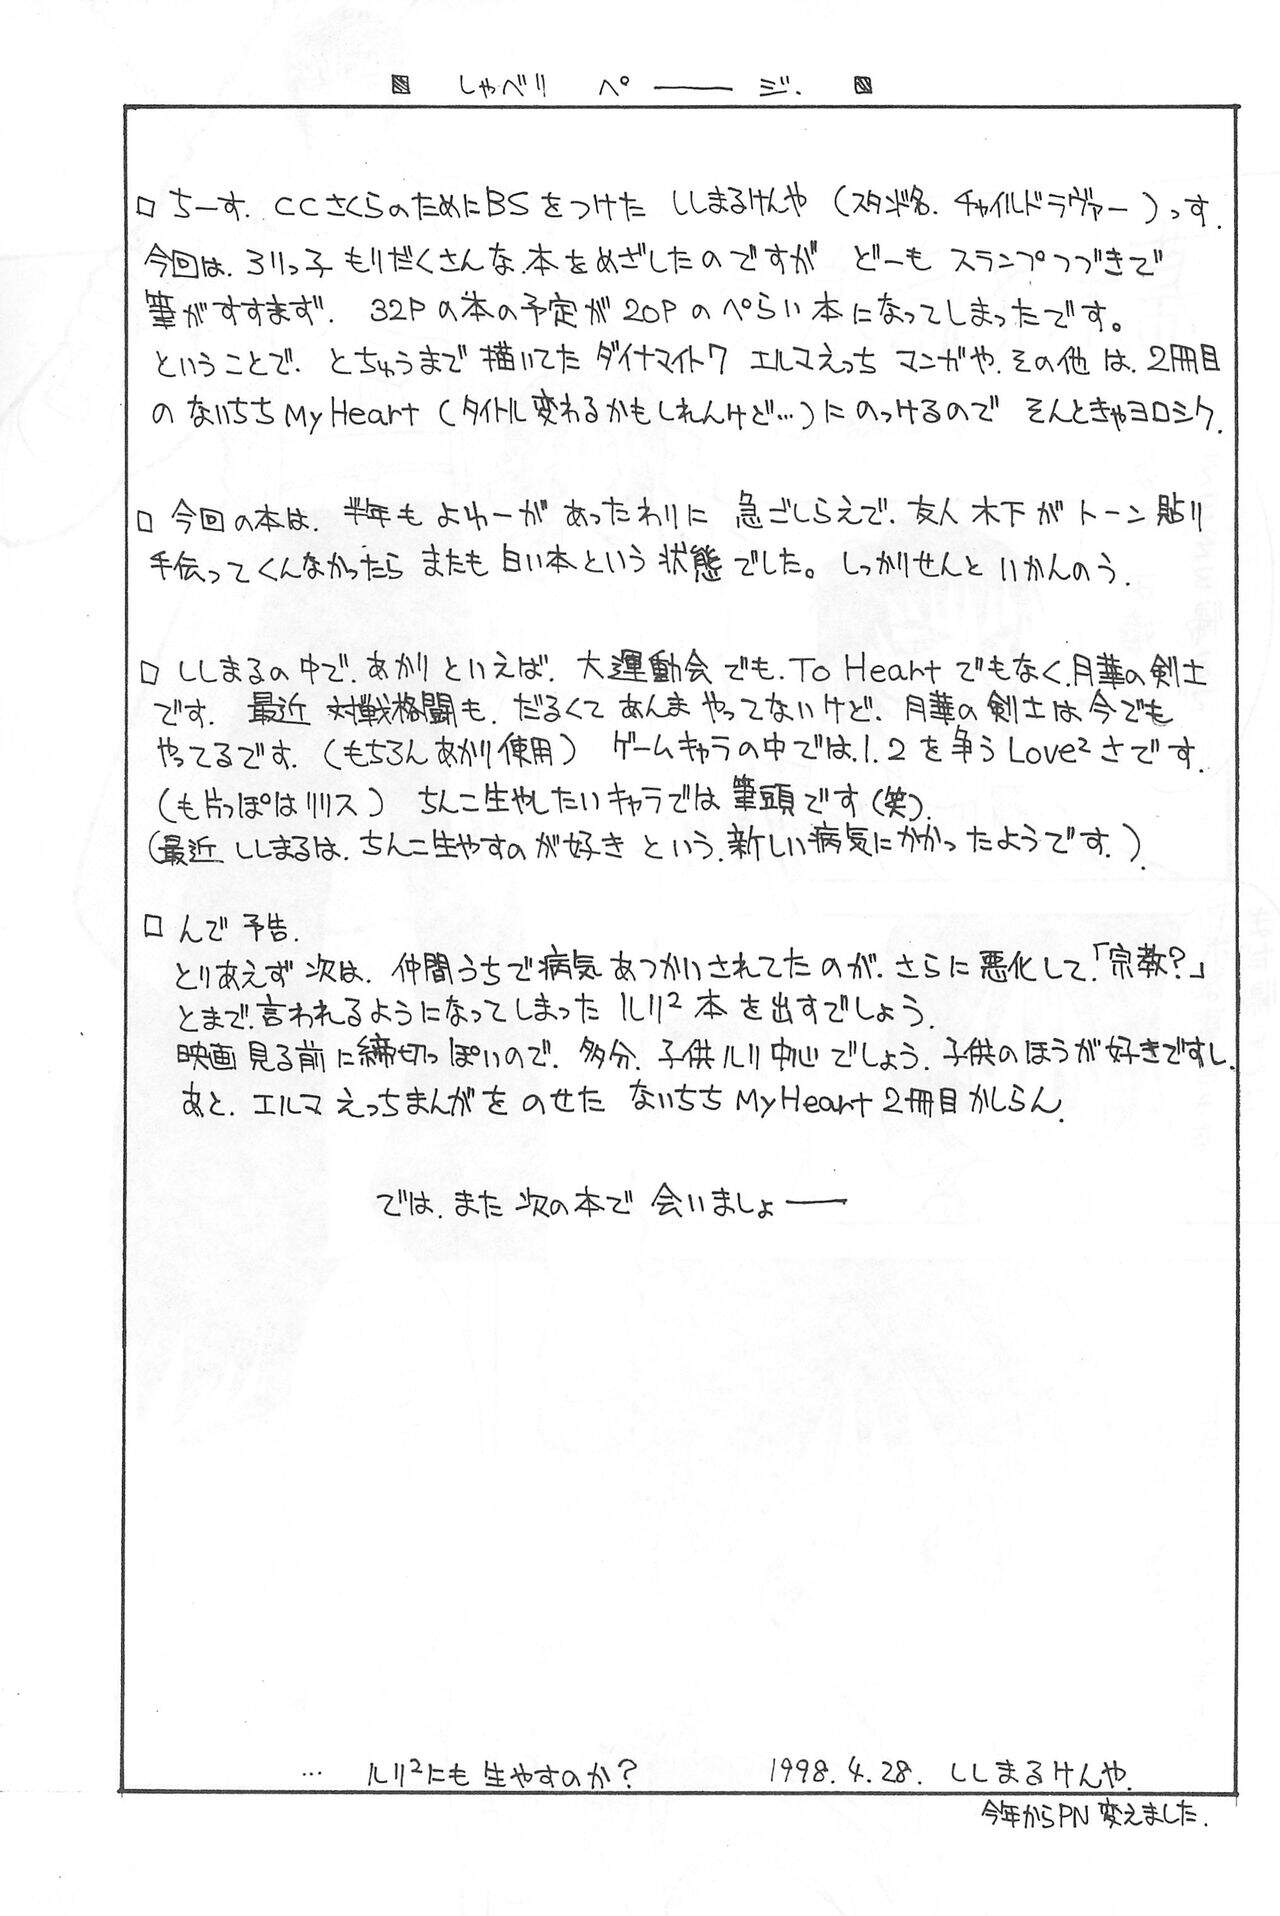 しゃべり ペ──ジ.
□ ちーす. CCさくらのためにBSをつけた ししまるけんや (スタンド名. チャイルドラヴァー)っす.
今回は. ろりっ子 もりだくさんな.本をめざしたのですが どーも スランプつづきで
筆がすすまず. 32Pの本の予定が20Pのぺらい本になってしまったです。
ということで. とちゅうまで描いてた ダイナマイト7 エルマえっち マンガや.その他は.2冊目
のないちちMy Heart (タイトル変わるかもしれんけど…)にのっけるので そんときゃヨロシク.
□ 今回の本は. 半年もよゆーがあったわりに 急ごしらえで.友人 木下がトーン貼り
手伝ってくんなかったら またも白い本という状態でした。しっかりせんと いかんのう.
□ ししまるの中で.あかりといえば. 大運動会でも.To Heartでもなく.月華の剣士
です. 最近 対戦格闘も. だるくて あんま やってないけど. 月華の剣士は今でも
やってるです.(もちろんあかり使用) ゲームキャラの中では.1.2を争うLove²さです.
(も片っぽはリリス) ちんこ生やしたいキャラでは筆頭です(笑).
(最近 ししまるは.ちんこ生やすのが好き という.新しい病気にかかったようです.).
□ んで 予告.
とりあえず 次は. 仲間うちで病気あつかいされてたのが.さらに悪化して.「宗教?」
とまで.言われるようになってしまった ルリ² 本を出すでしょう.
映画見る前に締切っぽいので. 多分. 子供ルリ中心でしょう.子供のほうが好きですし.
あと. エルマ えっちまんがを のせた ないちち My Heart 2冊目かしらん.
では.また次の本で 会いましょ──
… ルリ²にも生やすのか? 1998.4.28. ししまるけんや.
今年からPN変えました.